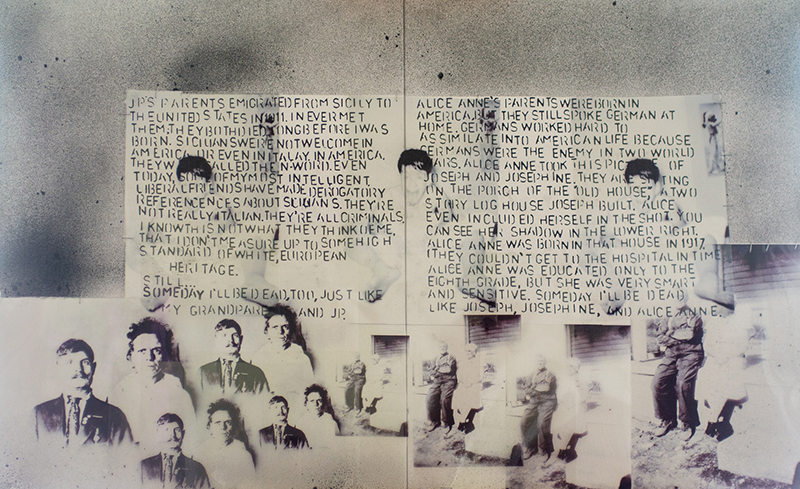 J.P.'S PARENTS EMIGRATED FROM SICILY TO
THE UNITED STATES IN 1911. I NEVER MET
THEM; THEY BOTH DIED LONG BEFORE I WAS
BORN. SICILIANS WERE NOT WELCOME IN
AMERICA, OR EVEN IN ITALAY. IN AMERICA,
THEY WERE CALLED THE N-WORD. EVEN
TODAY, SOME OF MY MOST INTELLIGENT,
LIBERAL FRIENDS HAVE MADE DEROGATORY
REFERENCES ABOUT SICILIANS. THEY'RE
NOT REALLY ITALIAN. THEY'RE ALL CRIMINALS.
I KNOW THIS IS NOT WHAT THEY THINK OF ME,
THAT I DON'T MEASURE UP TO SOME HIGH
STANDARD OF WHITE, EUROPEAN
HERITAGE.
STILL...
SOMEDAY I'LL BE DEAD, TOO, JUST LIKE
MY GRANDPARENTS AND J.P.
ALICE ANNE'S PARENTS WERE BORN IN
AMERICA, BUT THEY STILL SPOKE GERMAN AT
HOME. GERMANS WORKED HARD TO
ASSIMILATE INTO AMERICAN LIFE BECAUSE
GERMANS WERE THE ENEMY IN TWO WORLD
WARS. ALICE ANNE TOOK THIS PICTURE OF
JOSEPH AND JOSEPHINE. THEY ARE SITTING
ON THE PORCH OF THE OLD HOUSE, A TWO
STORY LOG HOUSE JOSEPH BUILT. ALICE
EVEN INCLUDED HERSELF IN THE SHOT. YOU
CAN SEE HER SHADOW IN THE LOWER RIGHT.
ALICE ANNE WAS BORN IN THAT HOUSE IN 1917.
(THEY COULDN'T GET TO THE HOSPITAL IN TIME.
ALICE ANNE WAS EDUCATED ONLY TO THE
EIGHTH GRADE, BUT SHE WAS VERY SMART
AND SENSITIVE. SOMEDAY I'LL BE DEAD
LIKE JOSEPH, JOSEPHINE, AND ALICE ANNE.